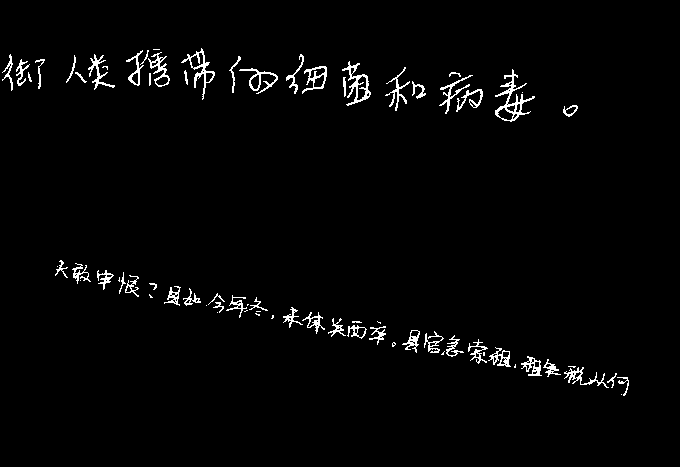 御人类携带的细菌和病毒。
夫敢申恨?且如今年冬,未休关西卒。县官急索租,租税从何